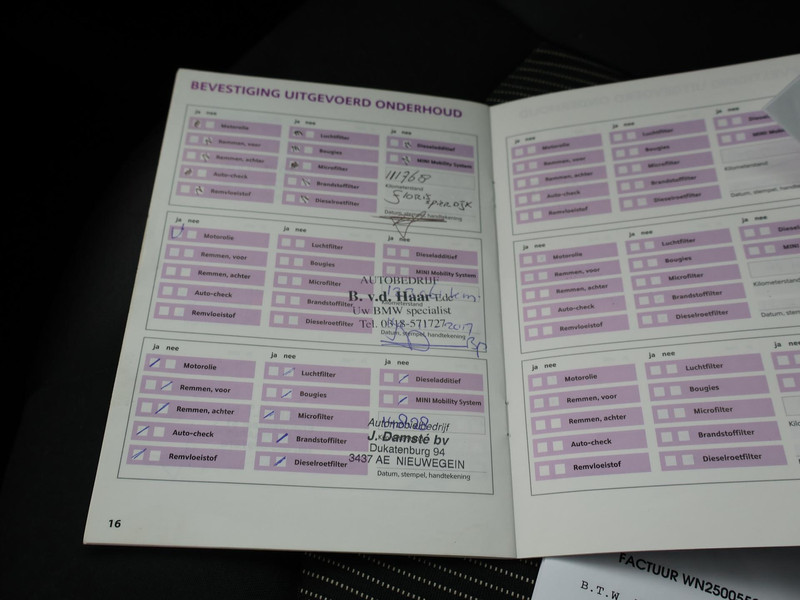 BEVESTIGING UITGEVOERD ONDERHOUD
ja nee
ja nee
ja nee
Motorolie
Luchtfilter
Dieseladditief
Remmen, voor
Bougies
MINI Mobility System
Remmen, achter
Microfilter
111768
Kilometerstand
Auto-check
Brandstoffilter
Remvloeistof
Dieselroetfilter
Datum, stempel, handtekening
ja nee
ja nee
ja nee
Motorolie
Luchtfilter
Dieseladditief
Remmen, voor
Bougies
MINI Mobility System
Remmen, achter
Microfilter
Auto-check
Brandstoffilter
Remvloeistof
Dieselroetfilter
AUTOBEDRIJF
B. v.d. Haar
Uw BMW specialist
Tel. 0318-571727
2017
Datum, stempel, handtekening
ja nee
ja nee
ja nee
Motorolie
Luchtfilter
Dieseladditief
Remmen, voor
Bougies
MINI Mobility System
Remmen, achter
Microfilter
Auto-check
Brandstoffilter
Remvloeistof
Dieselroetfilter
Automobielbedrijf
J. Damsté bv
Dukatenburg 94
3437 AE NIEUWEGEIN
Datum, stempel, handtekening
16
ja nee
ja nee
ja nee
Motorolie
Luchtfilter
Remmen, voor
Bougies
MINI Mobi
Remmen, achter
Microfilter
Kilometerstand
Auto-check
Brandstoffilter
Remvloeistof
Dieselroetfilter
Datum, stempel, hand
ja nee
ja nee
ja nee
Motorolie
Luchtfilter
Remmen, voor
Bougies
MINI
Remmen, achter
Microfilter
Kilometerstand
Auto-check
Brandstoffilter
Remvloeistof
Dieselroetfilter
Datum, stemp
ja nee
ja nee
ja
Motorolie
Luchtfilter
Remmen, voor
Bougies
Remmen, achter
Microfilter
Auto-check
Brandstoffilter
Remvloeistof
Dieselroetfilter
FACTUUR WN250055
B.T.W